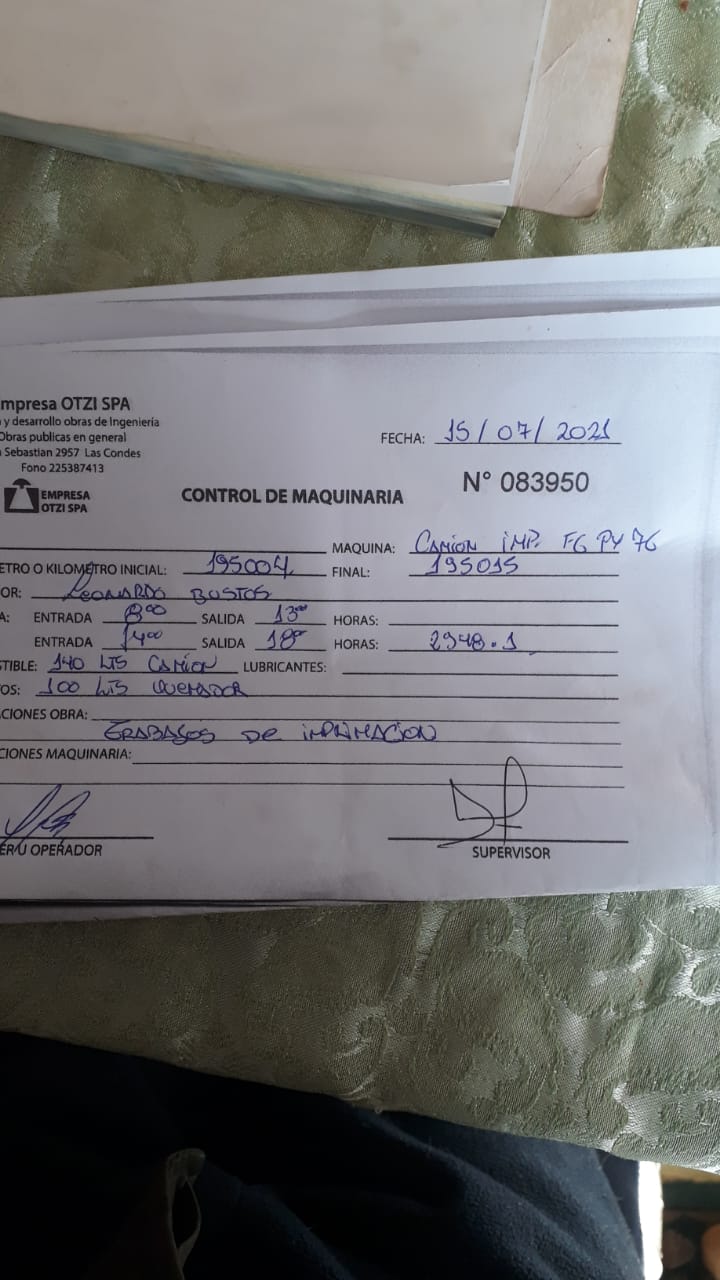 mpresa OTZI SPA
y desarrollo obras de Ingeniería
Obras publicas en general
Sebastian 2957 Las Condes
Fono 225387413
EMPRESA
OTZI SPA
FECHA: 15/07/2021
CONTROL DE MAQUINARIA
N° 083950
MAQUINA: CAMION IMP. FG PY 76
ETRO O KILOMETRO INICIAL: 195004 FINAL: 195015
OR: LEONARDO BUSTOS
A: ENTRADA 8:00 SALIDA 13:00 HORAS:
ENTRADA 14:00 SALIDA 18:00 HORAS: 2948.1
TIBLE: 140 LTS CAMION LUBRICANTES:
OS: 100 LTS QUEMADOR
CIONES OBRA:
TRABAJOS DE IMPRIMACION
CIONES MAQUINARIA:
ER/U OPERADOR
SUPERVISOR